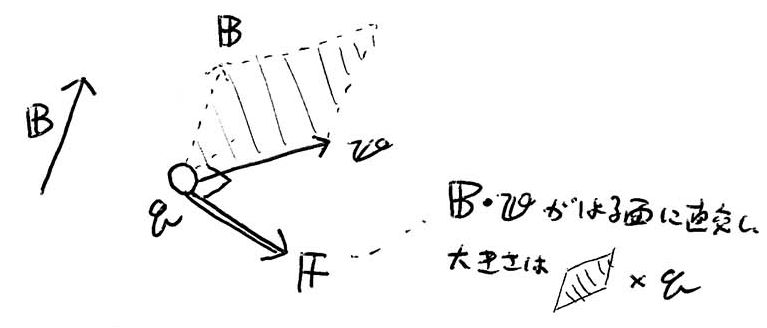 B
B
v
q
F
B・vがはる面に直交し
大きさは × q